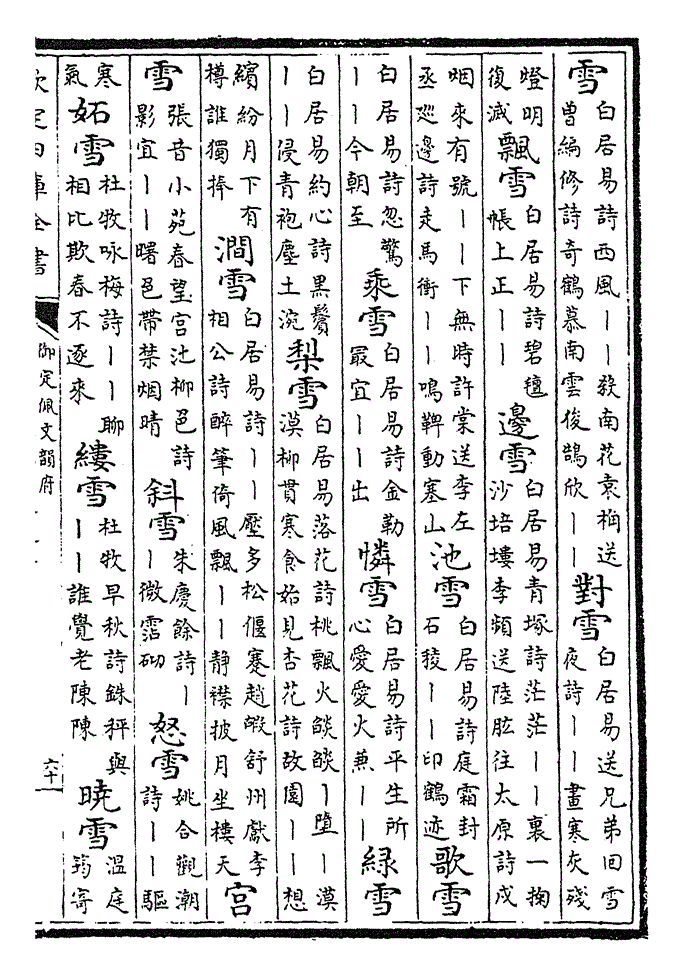 雪 白居易詩西風丨丨發南花袁桷送曽編修詩竒鶴慕南雲俊鵠欣丨丨 對雪 白居易送兄弟回雪夜詩丨丨畫寒灰殘
燈明復滅 飄雪 白居易詩碧氊帳上正丨丨 邊雪 白居易青塚詩茫茫丨丨裏一掬沙培塿李頻送陸肱往太原詩戍
烟來有號丨丨下無時許棠送李左丞廵邊詩走馬衝丨丨鳴鞞動塞山 池雪 白居易詩庭霜封石稜丨丨印鶴迹 歌雪
白居易詩忽驚丨丨今朝至 乘雪 白居易詩金勒最宜丨丨出 憐雪 白居易詩平生所心愛愛火兼丨丨 緑雪
白居易約心詩黒鬢丨丨侵青袍塵土涴 梨雪 白居易落花詩桃飄火燄燄丨墮丨漠漠柳貫寒食始見杏花詩故園丨丨想
繽紛月下有樽誰獨捧 澗雪 白居易詩丨丨壓多松偃蹇趙嘏舒州獻李相公詩醉筆倚風飄丨丨静襟披月坐樓天 宫
雪 張音小苑春望宫池柳色詩影宜丨丨曙色帶禁烟晴 斜雪 朱慶餘詩丨丨微霑砌 怒雪 姚合觀潮詩丨丨驅
寒氣 妬雪 杜牧咏梅詩丨丨聊相比欺春不逐來 縷雪 杜牧早秋詩銖秤與丨丨誰覺老陳陳 曉雪 溫庭筠寄
欽定四庫全書 御定佩文韻府